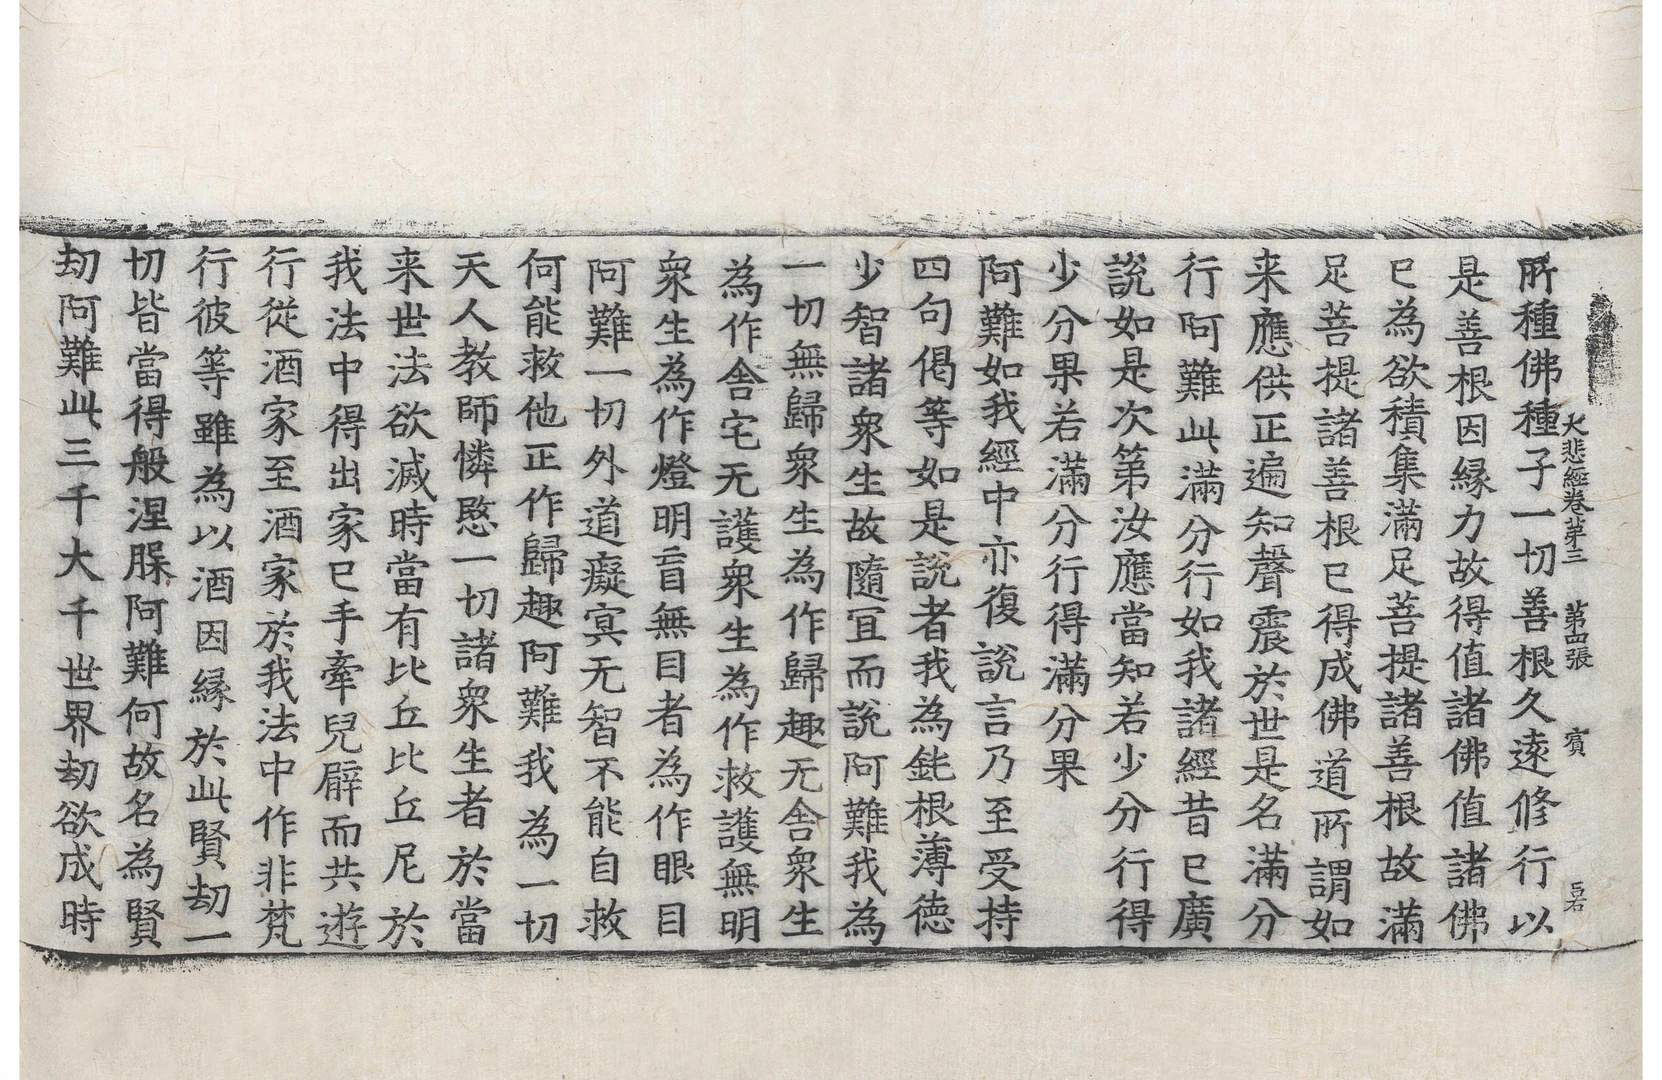 大悲經卷第三　第四張　賓　巨石
所種佛種子一切善根久遠修行以
是善根因緣力故得值諸佛值諸佛
已為欲積集滿足菩提諸善根故滿
足菩提諸善根已得成佛道所謂如
来應供正遍知聲震於世是名滿分
行阿難此滿分行如我諸經昔已廣
說如是次第汝應當知若少分行得
少分果若滿分行得滿分果
阿難如我經中亦復說言乃至受持
四句偈等如是說者我為鈍根薄德
少智諸衆生故隨冝而說阿難我為
一切無歸衆生為作歸趣无舍衆生
為作舍宅无護衆生為作救護無明
衆生為作燈明盲無目者為作眼目
阿難一切外道癡冥无智不能自救
何能救他正作歸趣阿難我為一切
天人教師憐愍一切諸衆生者於當
来世法欲滅時當有比丘比丘尼於
我法中得出家已手牽兒臂而共遊
行從酒家至酒家於我法中作非梵
行彼等雖為以酒因緣於此賢劫一
切皆當得般涅槃阿難何故名為賢
劫阿難此三千大千世界劫欲成時